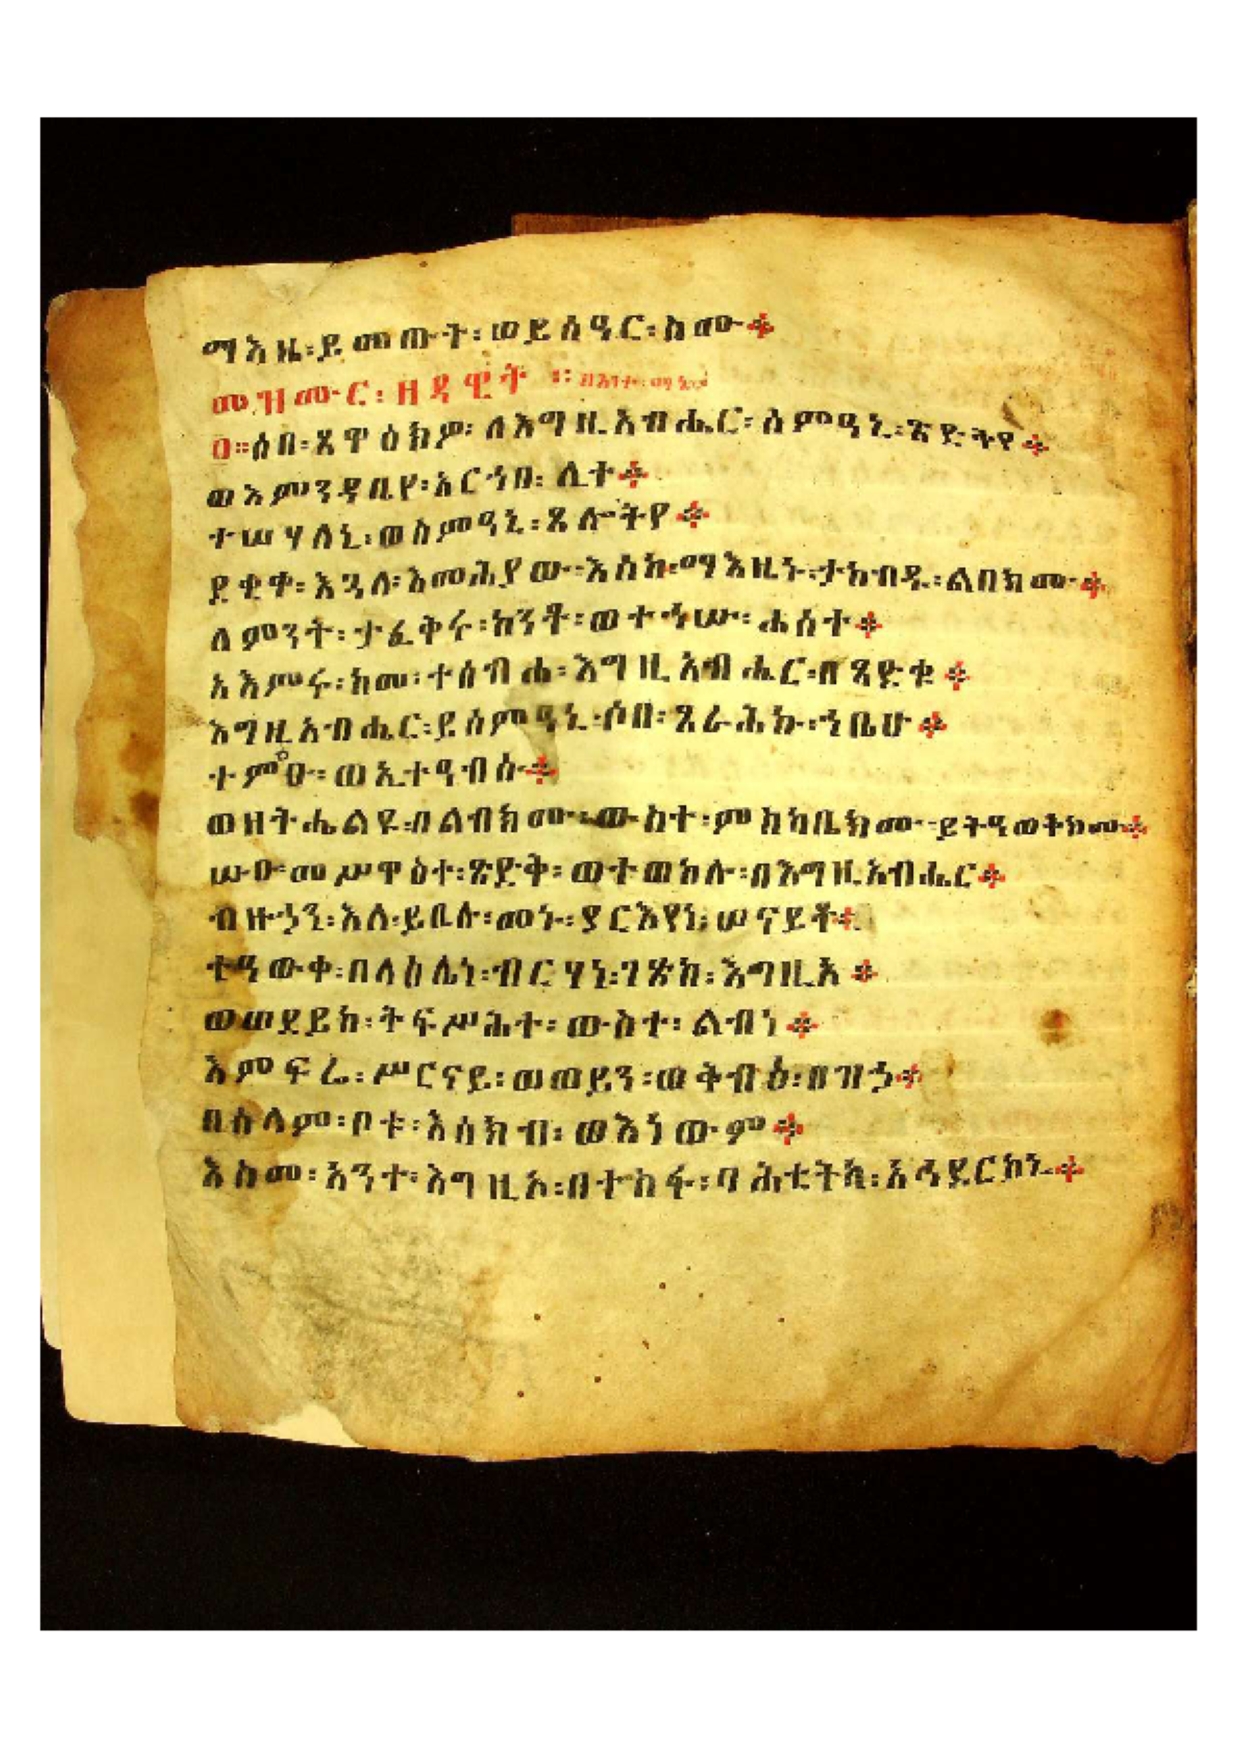 ማእዜ፡ይመጡት፡ወይሰዓር፡ስሙ፨
መዝሙር፡ዘዳዊት ።
፬።ሶበ፡ጸዋዕክዎ፡ለእግዚአብሔር፡ሰምዓኒ፡ጽድቅየ፨
ወእምንዳቤየ፡አርኀበ፡ሊተ፨
ተሣሃለኒ፡ወስምዓኒ፡ጸሎትየ፨
ደቂቀ፡እጓለ፡እመሕያው፡እስከ፡ማእዜኑ፡ታከብዱ፡ልበክሙ፨
ለምንት፡ታፈቅሩ፡ከንቶ፡ወተኀሡ፡ሐሰተ፨
አእምሩ፡ከመ፡ተሰብሐ፡እግዚአብሔር፡በጻድቁ፨
እግዚአብሔር፡ይሰምዓኒ፡ሶበ፡ጸራሕኩ፡ኀቤሁ፨
ተምዑ፡ወኢተዓብሱ፨
ወዘትሔልዩ፡በልብክሙ፡ውስተ፡ምስካቤክሙ፡ይትዓወቅክሙ፨
ሡዑ፡መሥዋዕተ፡ጽድቅ፡ወተወከሉ፡በእግዚአብሔር፨
ብዙኃን፡እለ፡ይቤሉ፡መኑ፡ያርእየነ፡ሠናይቶ፨
ተዓውቀ፡በላዕሌነ፡ብርሃነ፡ገጽከ፡እግዚኦ፨
ወወደይከ፡ትፍሥሕተ፡ውስተ፡ልብነ፨
እምፍሬ፡ሥርናይ፡ወወይን፡ወቅብዕ፡በዝኃ፨
በሰላም፡ቦቱ፡እሰክብ፡ወእነውም፨
እስመ፡አንተ፡እግዚኦ፡በተስፋ፡ባሕቲትከ፡አኅደርከኒ፨